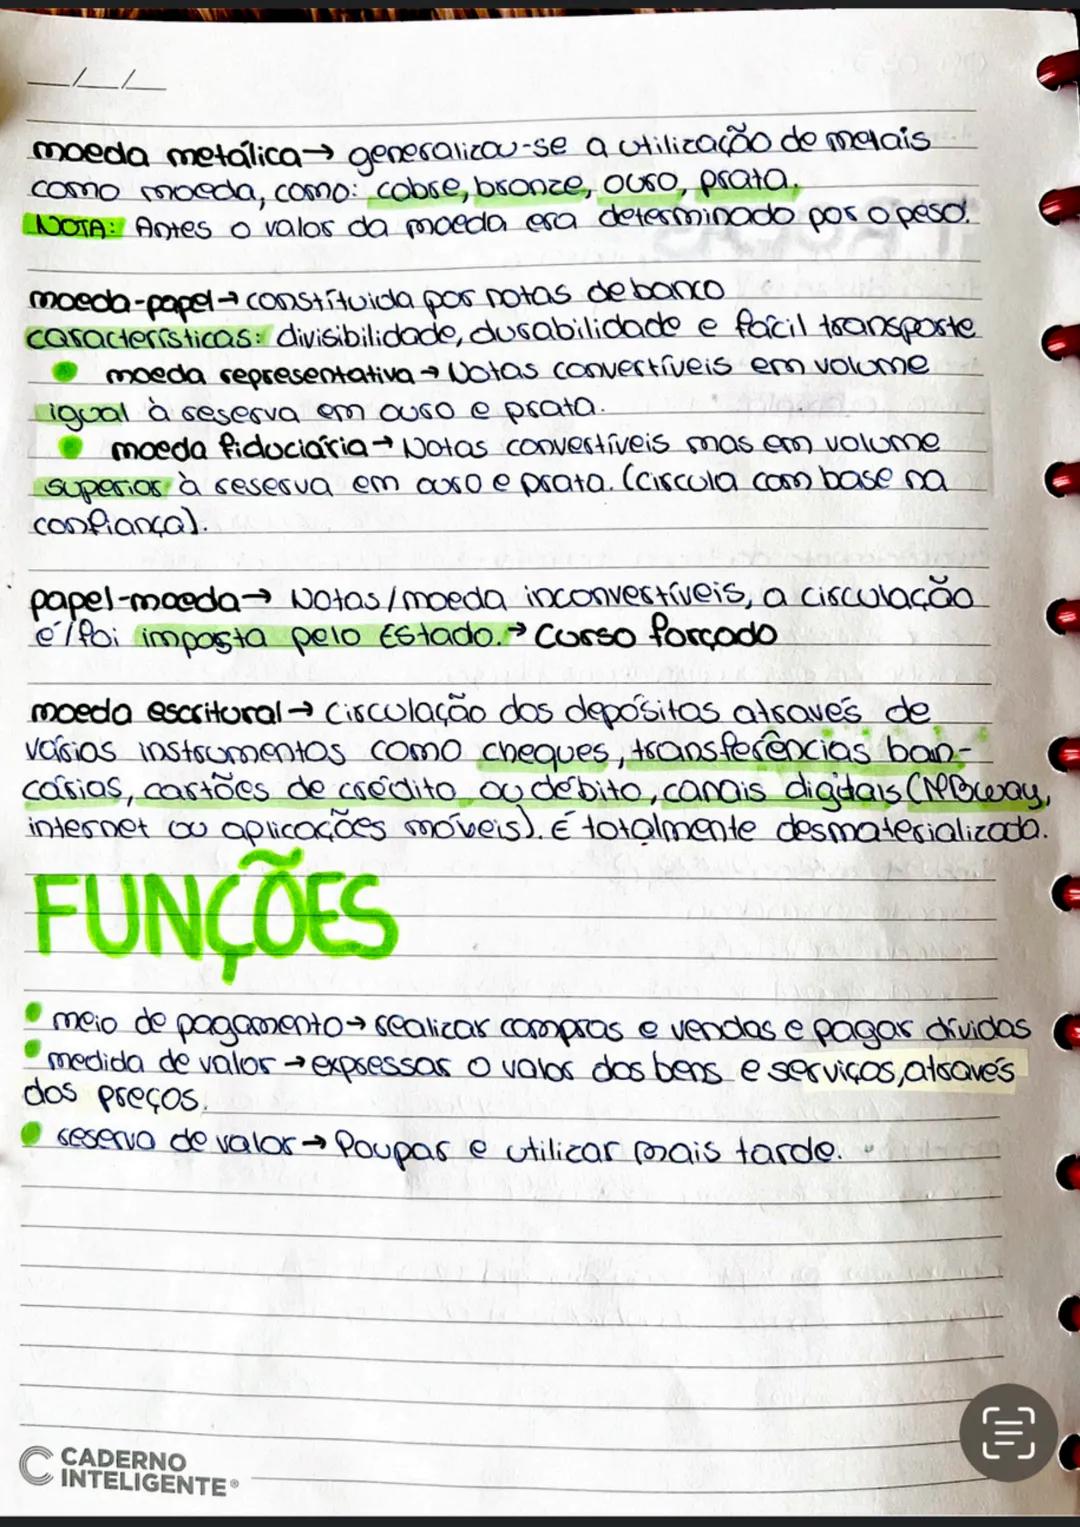 __/__/__
moeda metálica→ generalizou-se a utilização de metais
como moeda, como: cobre, bronze, ouro, prata.
NOTA: Antes o valor da moeda era determinado por o peso.
moeda-papel→ constítuida por notas de banco
características: divisibilidade, durabilidade e fácil transporte
• moeda representativa→ Notas convertíveis em volume
igual à reserva em ouro e prata.
• moeda fiduciária→ Notas convertíveis mas em volume
superior à reserva em ouro e prata. (circula com base na
confiança).
papel-moeda→ Notas/moeda inconvertíveis, a circulação
é/foi imposta pelo Estado.→ Curso forçado
moeda escritural→ Circulação dos depósitos através de
vários instrumentos como cheques, transferências ban-
cárias, cartões de crédito ou débito, canais digitais (MBway,
internet ou aplicações móveis). É totalmente desmaterializada.
FUNÇÕES
• meio de pagamento→ realizar compras e vendas e pagar dívidas
• medida de valor→ expressar o valor dos bens e serviços, através
dos preços.
• reserva de valor→ Poupar e utilizar mais tarde.
CADERNO
INTELIGENTE®